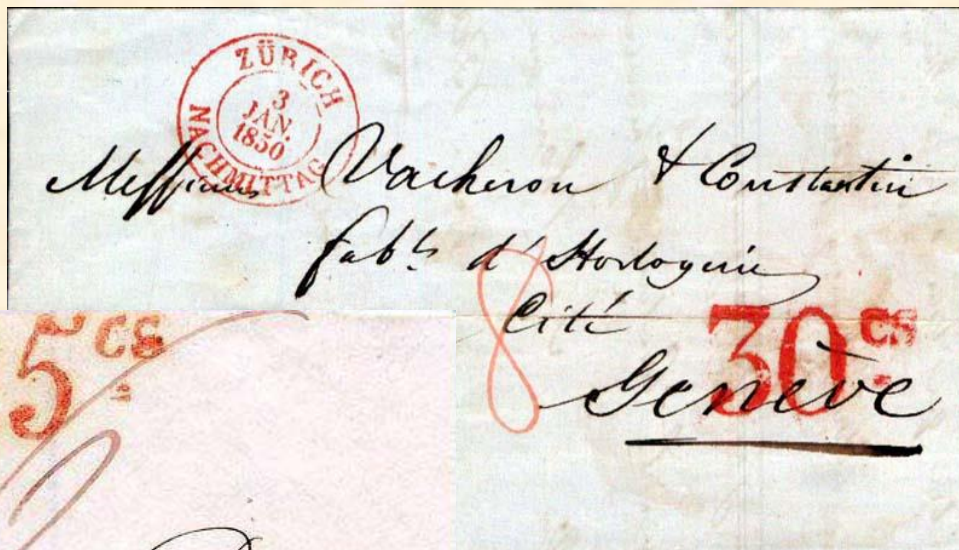 ZÜRICH
3
JAN.
1850
NACHMITTAG
Messieurs Vacheron & Constantin
fabts d'Horlogerie
Cité
Genève
8
30 cs
5 cs